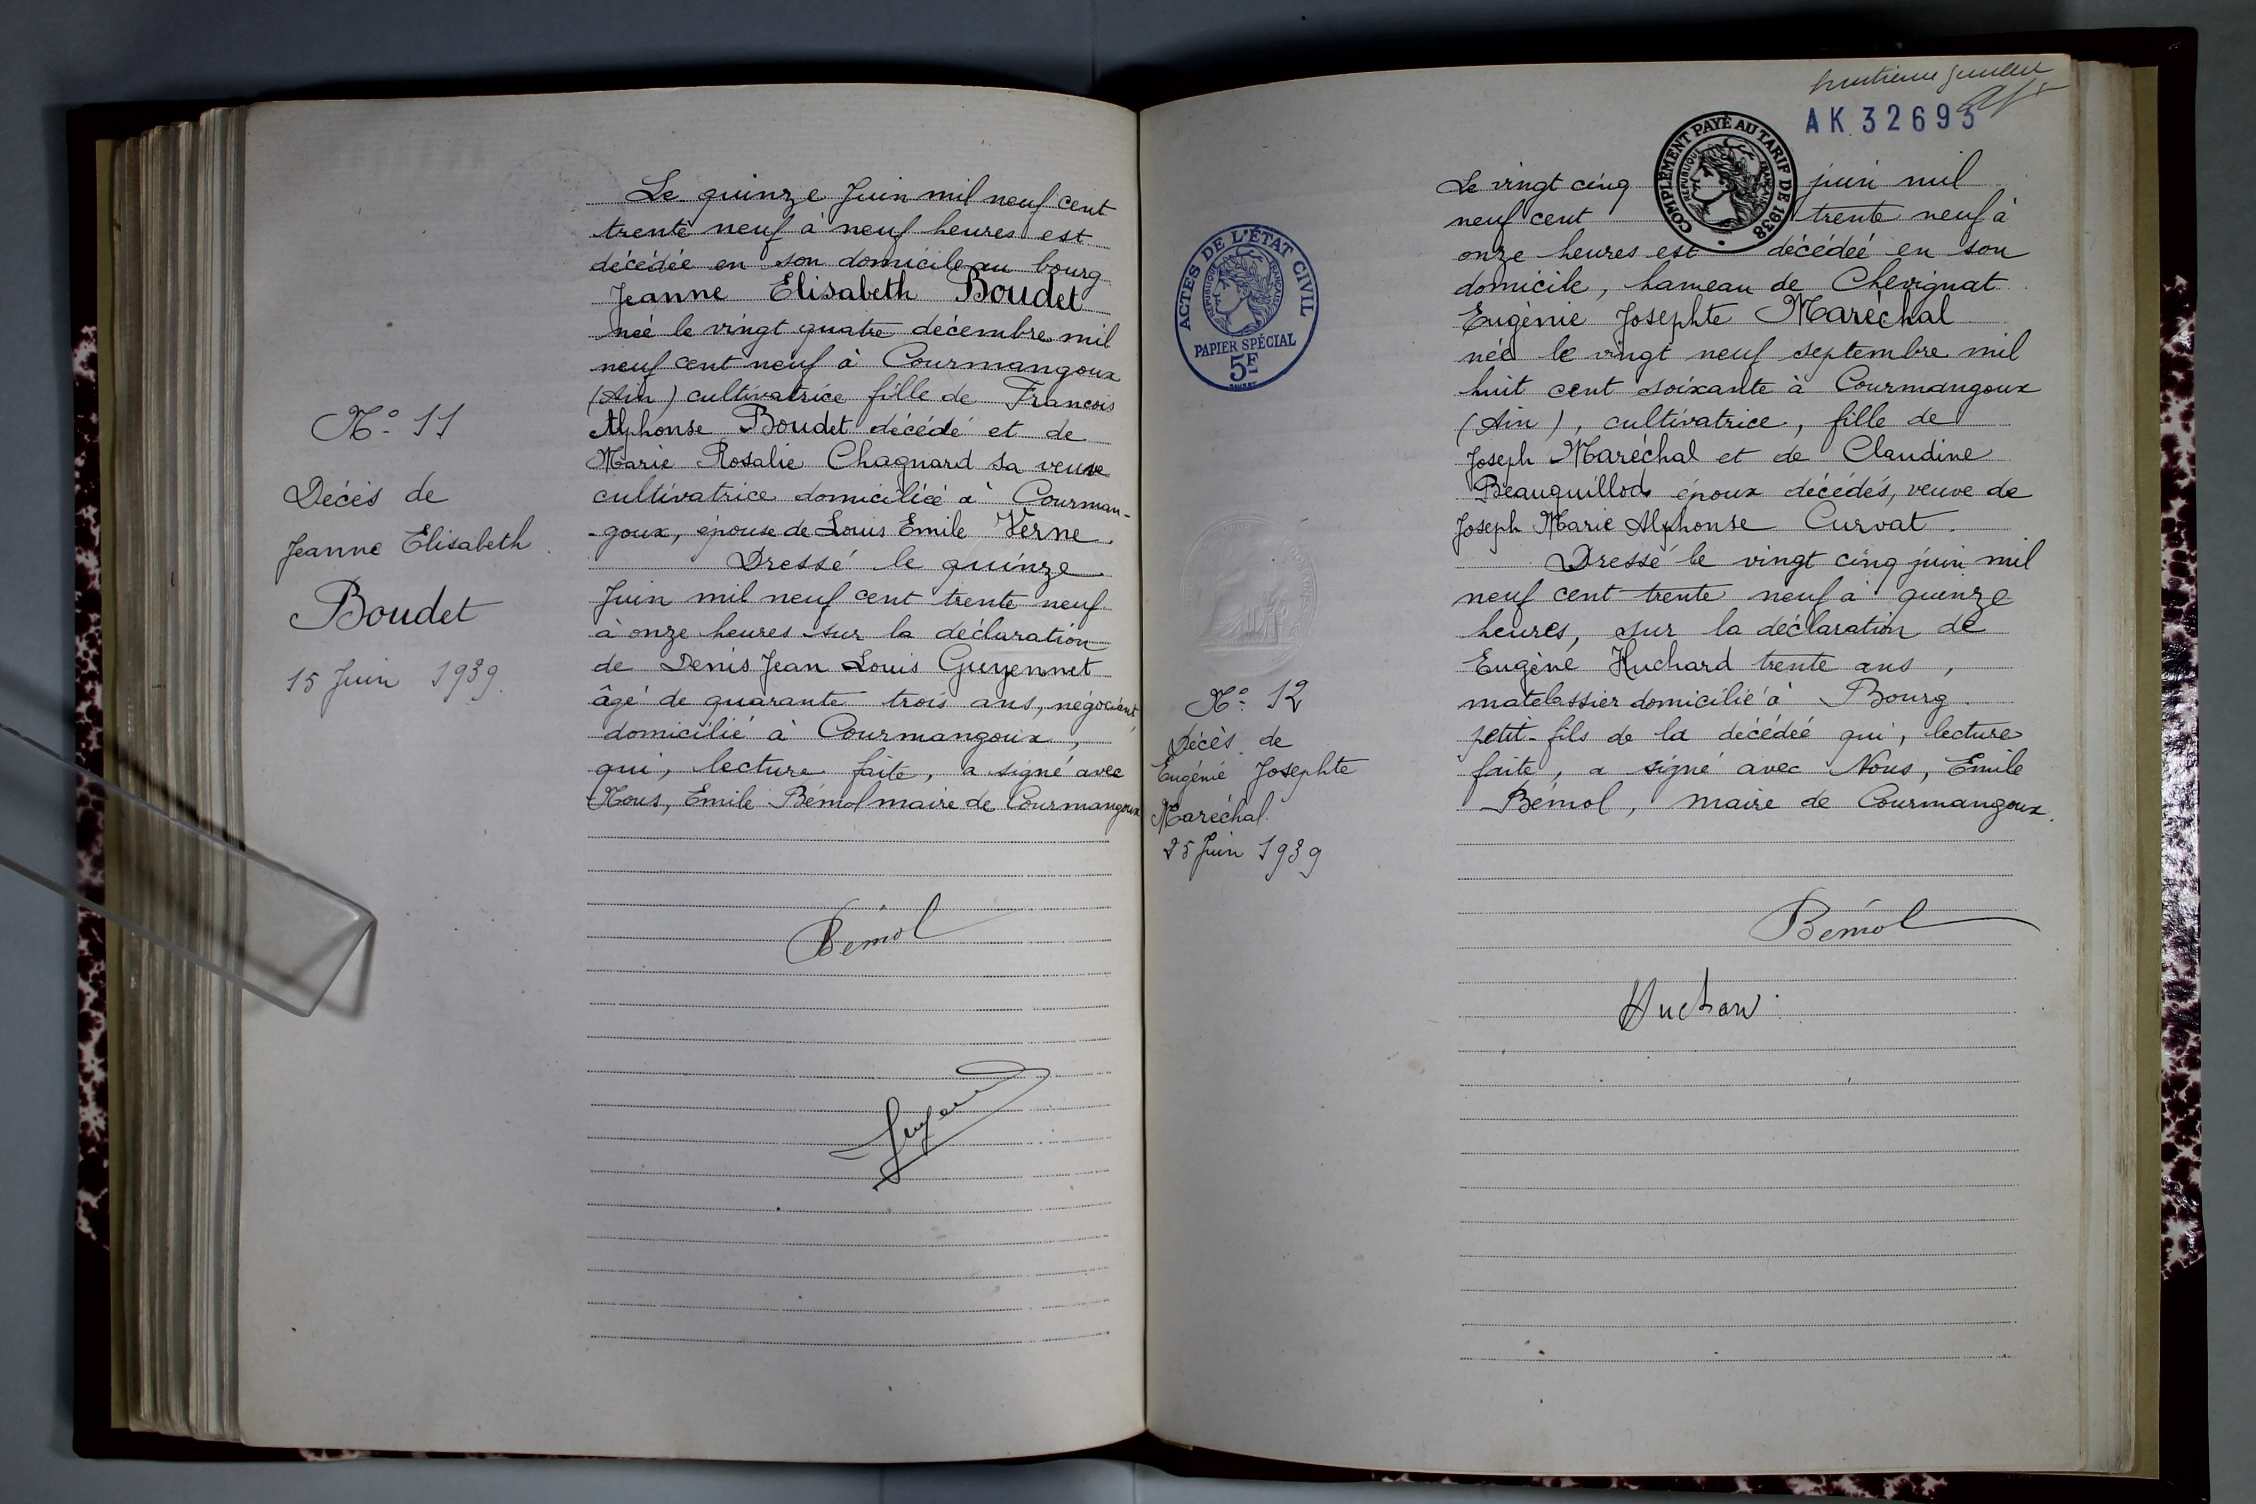 N° 11
Décès de
Jeanne Elisabeth
Boudet
15 Juin 1939.
Le quinze Juin mil neuf cent
trente neuf à neuf heures est
décédée en son domicile au bourg
Jeanne Elisabeth Boudet
née le vingt quatre décembre mil
neuf cent neuf à Courmangoux
(Ain) cultivatrice fille de Francois
Alphonse Boudet décédé et de
Marie Rosalie Chagnard sa veuve
cultivatrice domiciliée à Courman-
-goux, épouse de Louis Emile Verne.
Dressé le quinze
Juin mil neuf cent trente neuf
à onze heures sur la déclaration
de Denis Jean Louis Guyennet
âgé de quarante trois ans, négociant,
domicilié à Courmangoux,
qui, lecture faite, a signé avec
Nous, Emile Bémol maire de Courmangoux
Bémol
huitième feuillet
AK.32693
COMPLÉMENT PAYÉ AU TARIF DE 1938
RÉPUBLIQUE FRANÇAISE
ACTES DE L'ÉTAT CIVIL
RÉPUBLIQUE FRANÇAISE
PAPIER SPÉCIAL
5F
N° 12
Décès de
Eugénie Josephte
Maréchal.
25 Juin 1939
Le vingt cinq juin mil
neuf cent trente neuf à
onze heures est décédée en son
domicile, hameau de Chevignat
Eugénie Josephte Maréchal
née le vingt neuf septembre mil
huit cent soixante à Courmangoux
(Ain), cultivatrice, fille de
Joseph Maréchal et de Claudine
Beauquillod, époux décédés, veuve de
Joseph Marie Alphonse Curvat.
Dressé le vingt cinq juin mil
neuf cent trente neuf à quinze
heures, sur la déclaration de
Eugène Huchard trente ans,
matelassier domicilié à Bourg.
petit-fils de la décédée qui, lecture
faite, a signé avec Nous, Emile
Bémol, maire de Courmangoux.
Bémol
Huchard